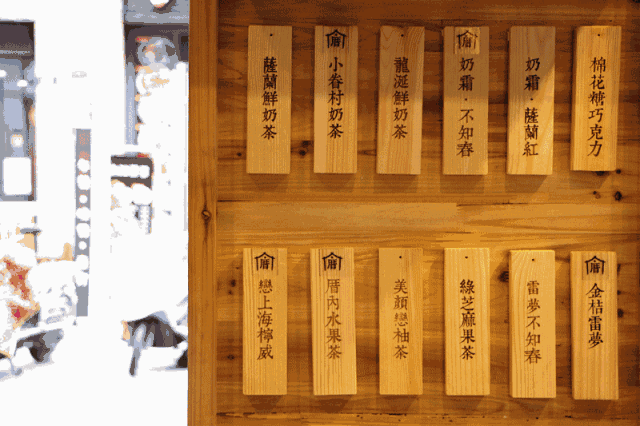 薩蘭鮮奶茶
厝
小春村奶茶
龍涎鮮奶茶
厝
奶霜·不知春
奶霜·薩蘭紅
棉花糖巧克力
厝
戀上海檸威
厝
厝內水果茶
美顏戀柚茶
綠芝麻果茶
雷夢不知春
厝
金桔雷夢